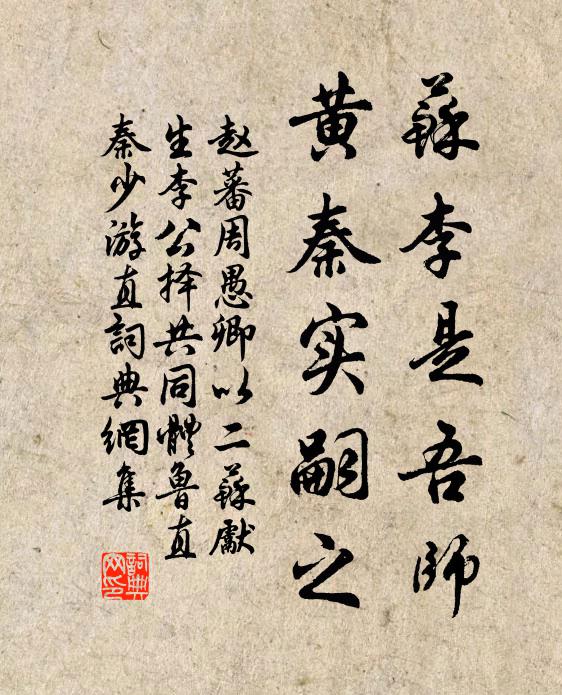 蘇李是吾師
黄秦实嗣之
赵蕃周愚卿以二蘇獻
生李公择共同體魯直
秦少游直詞典網集
詞典
网印